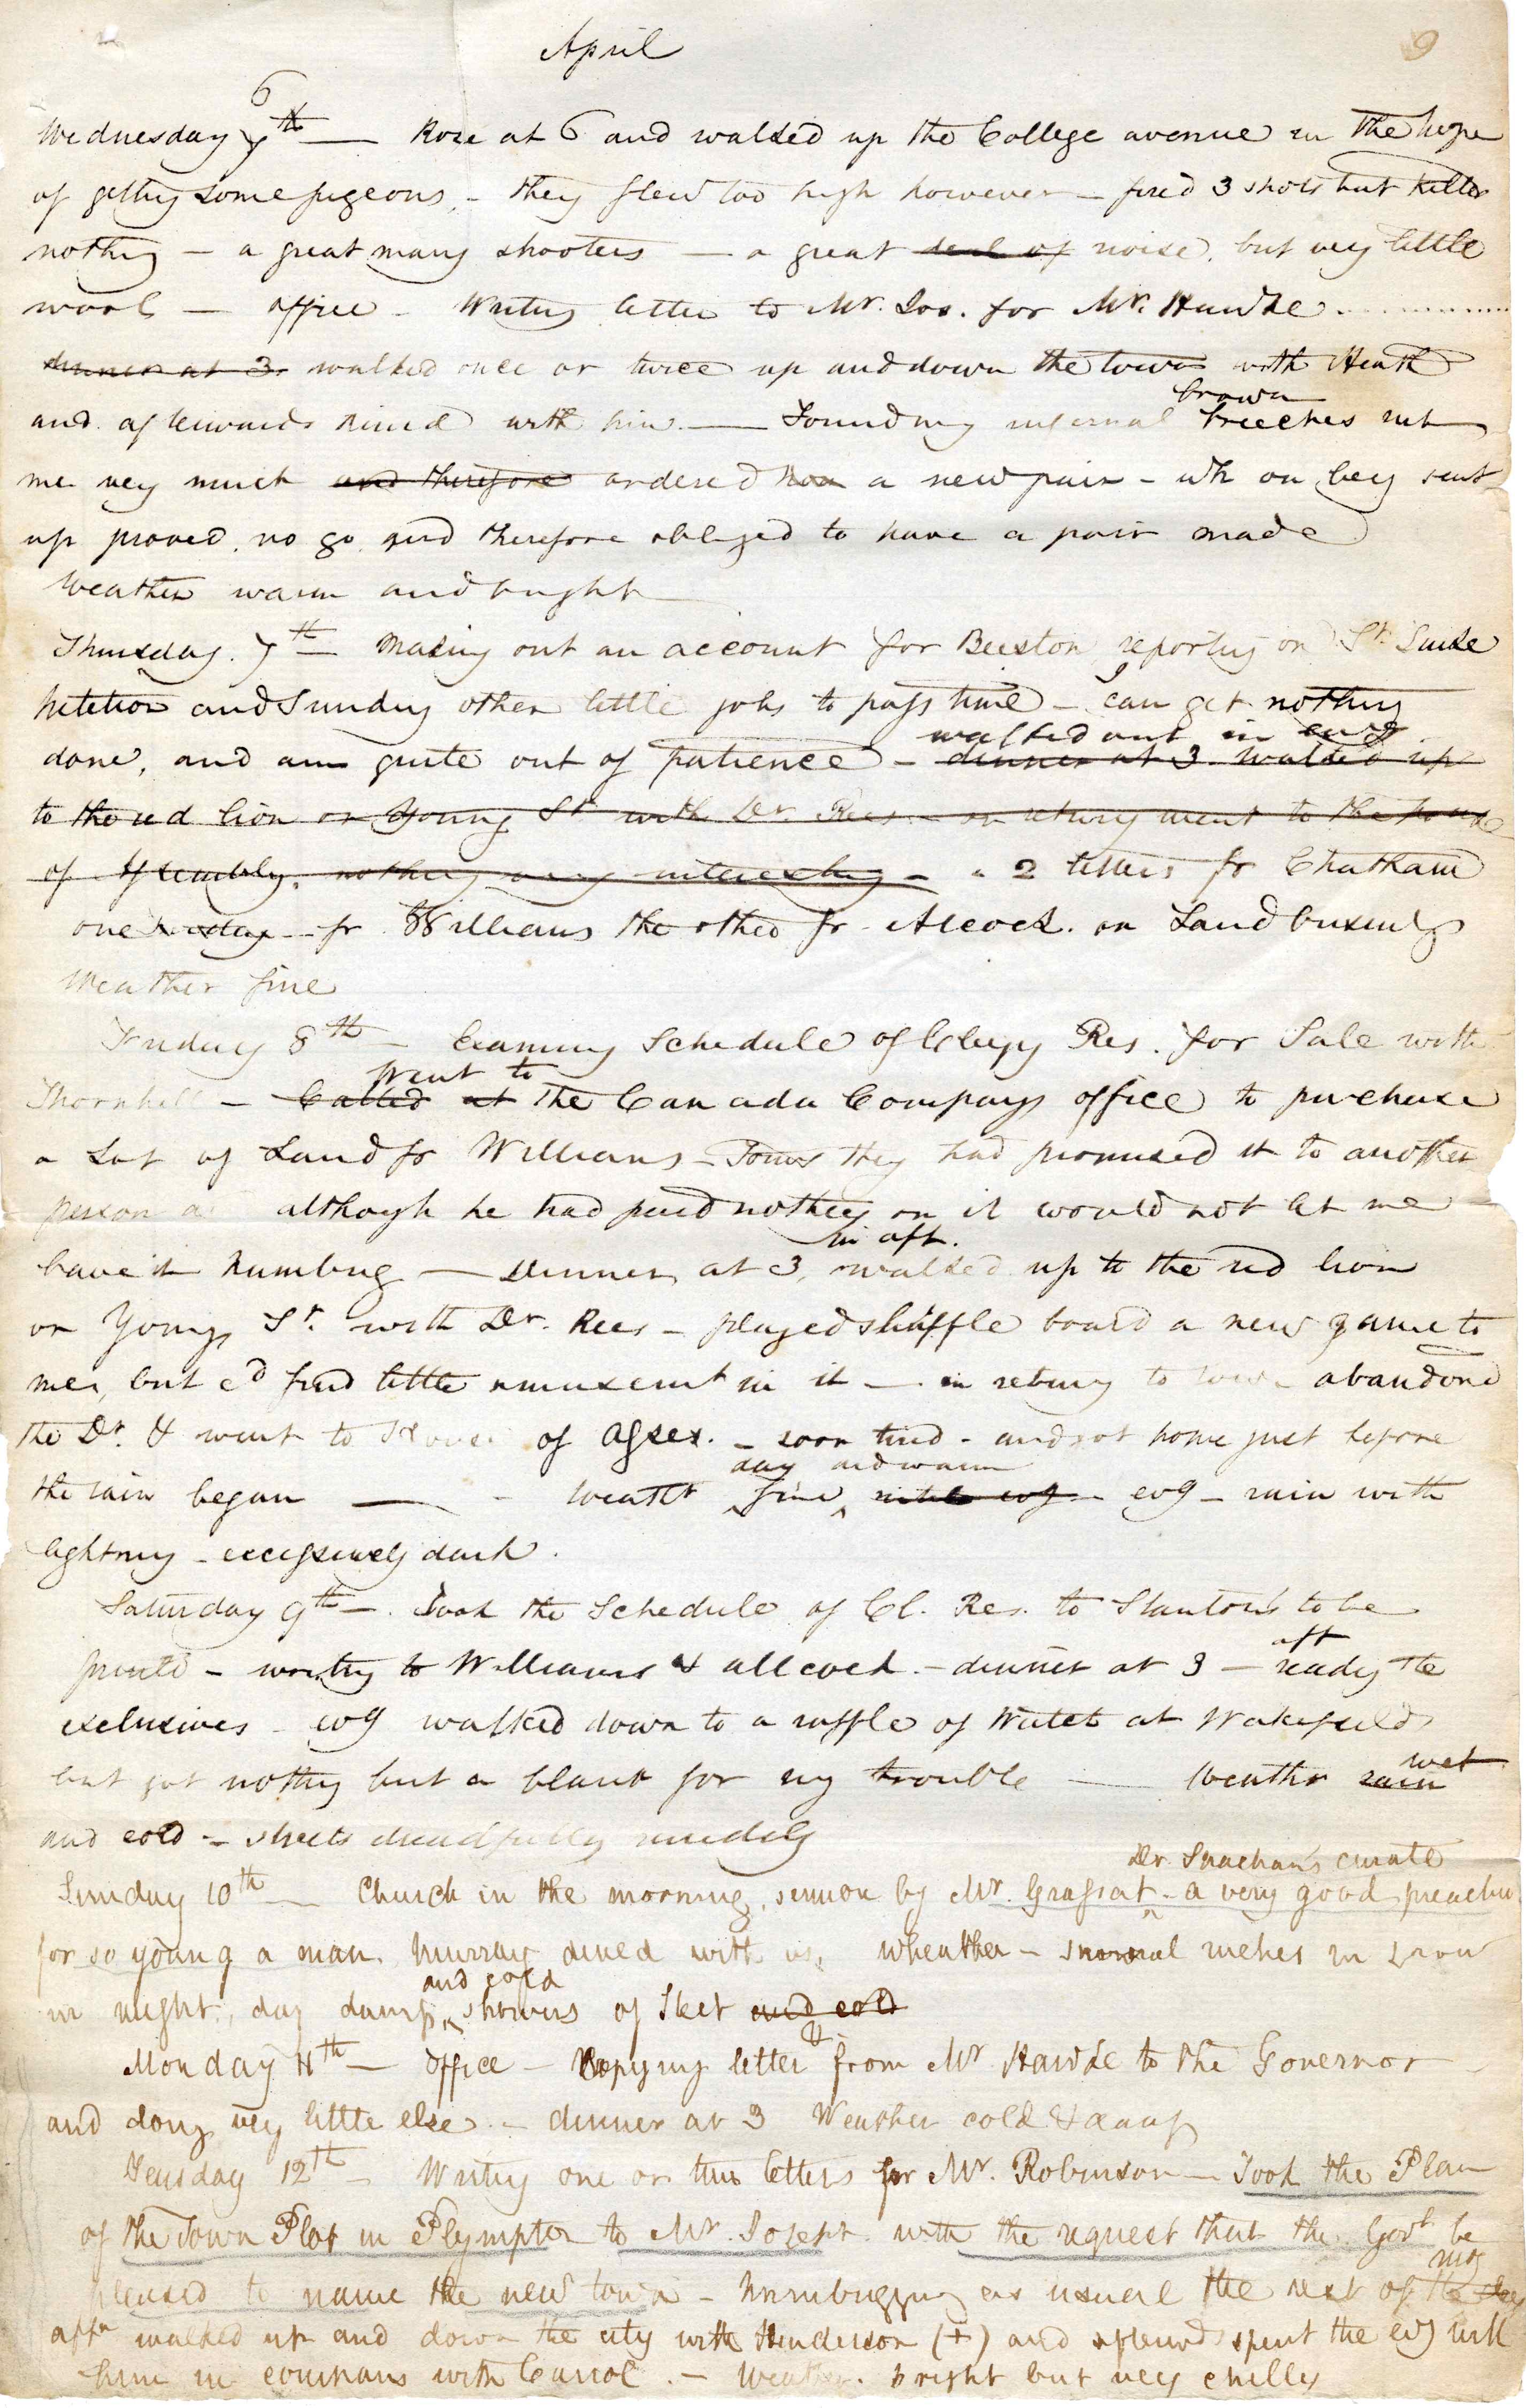 April
9
Wednesday 6th — Rose at 6 and walked up the College avenue in the hope
of gettg some pigeons, – they flew too high however – fired 3 shots but killed
nothing – a great many shooters — a great deal of noise, but very little
wool — office – Writing letter to Mr. Jos. for Mr. Hawke
dinner at 3. walked once or twice up and down the town with Heath
brown
and afterwards dined with him. — Found my infernal breeches rub
me very much and therefore ordered a new pair – wh on being sent
up proved no go and therefore obliged to have a pair made
Weather warm and bright
Thursday. 7th – Making out an account for Beeston reporting on St. Luke
Petition and Sundry other little jobs to pass time – I can get nothing
walked out in evg
done, and am quite out of patience – dinner at 3. walked up
to the red lion on Young St with Dr. Rees – on returng went to the house
of Assembly. nothing very interesting – 2 letters fr Chatham
one fr. Williams the other fr. Alcock. on Land business
Weather fine
Friday 8th – Examing Schedule of Clergy Res. for Sale with
went to
Thornhill – Called at the Canada Companys office to purchase
a Lot of Land for Williams – they had promised it to another
person although he had paid nothing on it would not let me
have it humbug — Dinner at 3, walked up to the red lion
in aft.
on Yong St. with Dr. Rees – played shuffle board a new game to
me, but cd find little amusement in it — on returng to town abandoned
the Dr. & went to House of Asses. – soon tired – and got home just before
day and warm
the rain began — – Weathr fine, evg – rain with
lightning – excessively dark.
Saturday 9th –. Took the Schedule of Cl. Res. to Stanton's to be
aft
printd – writing to Williams & allcock. – dinner at 3 – readg the
exclusives – evg walked down to a raffle of Watch at Wakefields
but got nothing but a blank for my trouble — Weather rain
wet
and cold – streets dreadfully muddy
Dr. Strachan's curate
Sunday 10th — Church in the morning, sermon by Mr. Grasset – a very good preacher
for so young a man. Murray dined with us, wheather – several inches in snow
and cold
in night, day damp, showers of sleet and cold
Monday 11th — office – Copying letter from Mr Hawke to the Governor
and doing very little else. – dinner at 3 Weather cold & damp
Teusday 12th – Writing one or two letters for Mr. Robinson – Took the Plan
of the Town Plot in Plympton to Mr. Joseph. with the request that the Govr be
pleased to name the new town – humbugging as usual the rest of the day
mog
aftn walked up and down the city with Henderson (+) and afterwds spent the evg with
him in with Carrol. – Weather. bright but very chilly